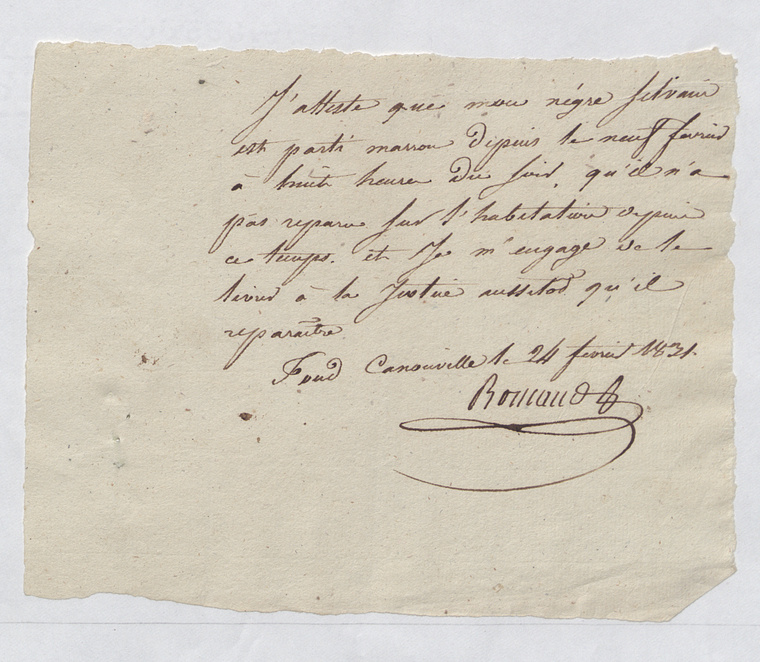 J'atteste que mon négre Silvain
est parti marron depuis le neuf fevrier
à huit heure du soir, qu'il n'a
pas reparu sur l'habitation depuis
ce temps. et Je m'engage de le
livrer à la Justice aussitod qu'il
reparaître
Fond Canouville le 24 fevrier 1831.